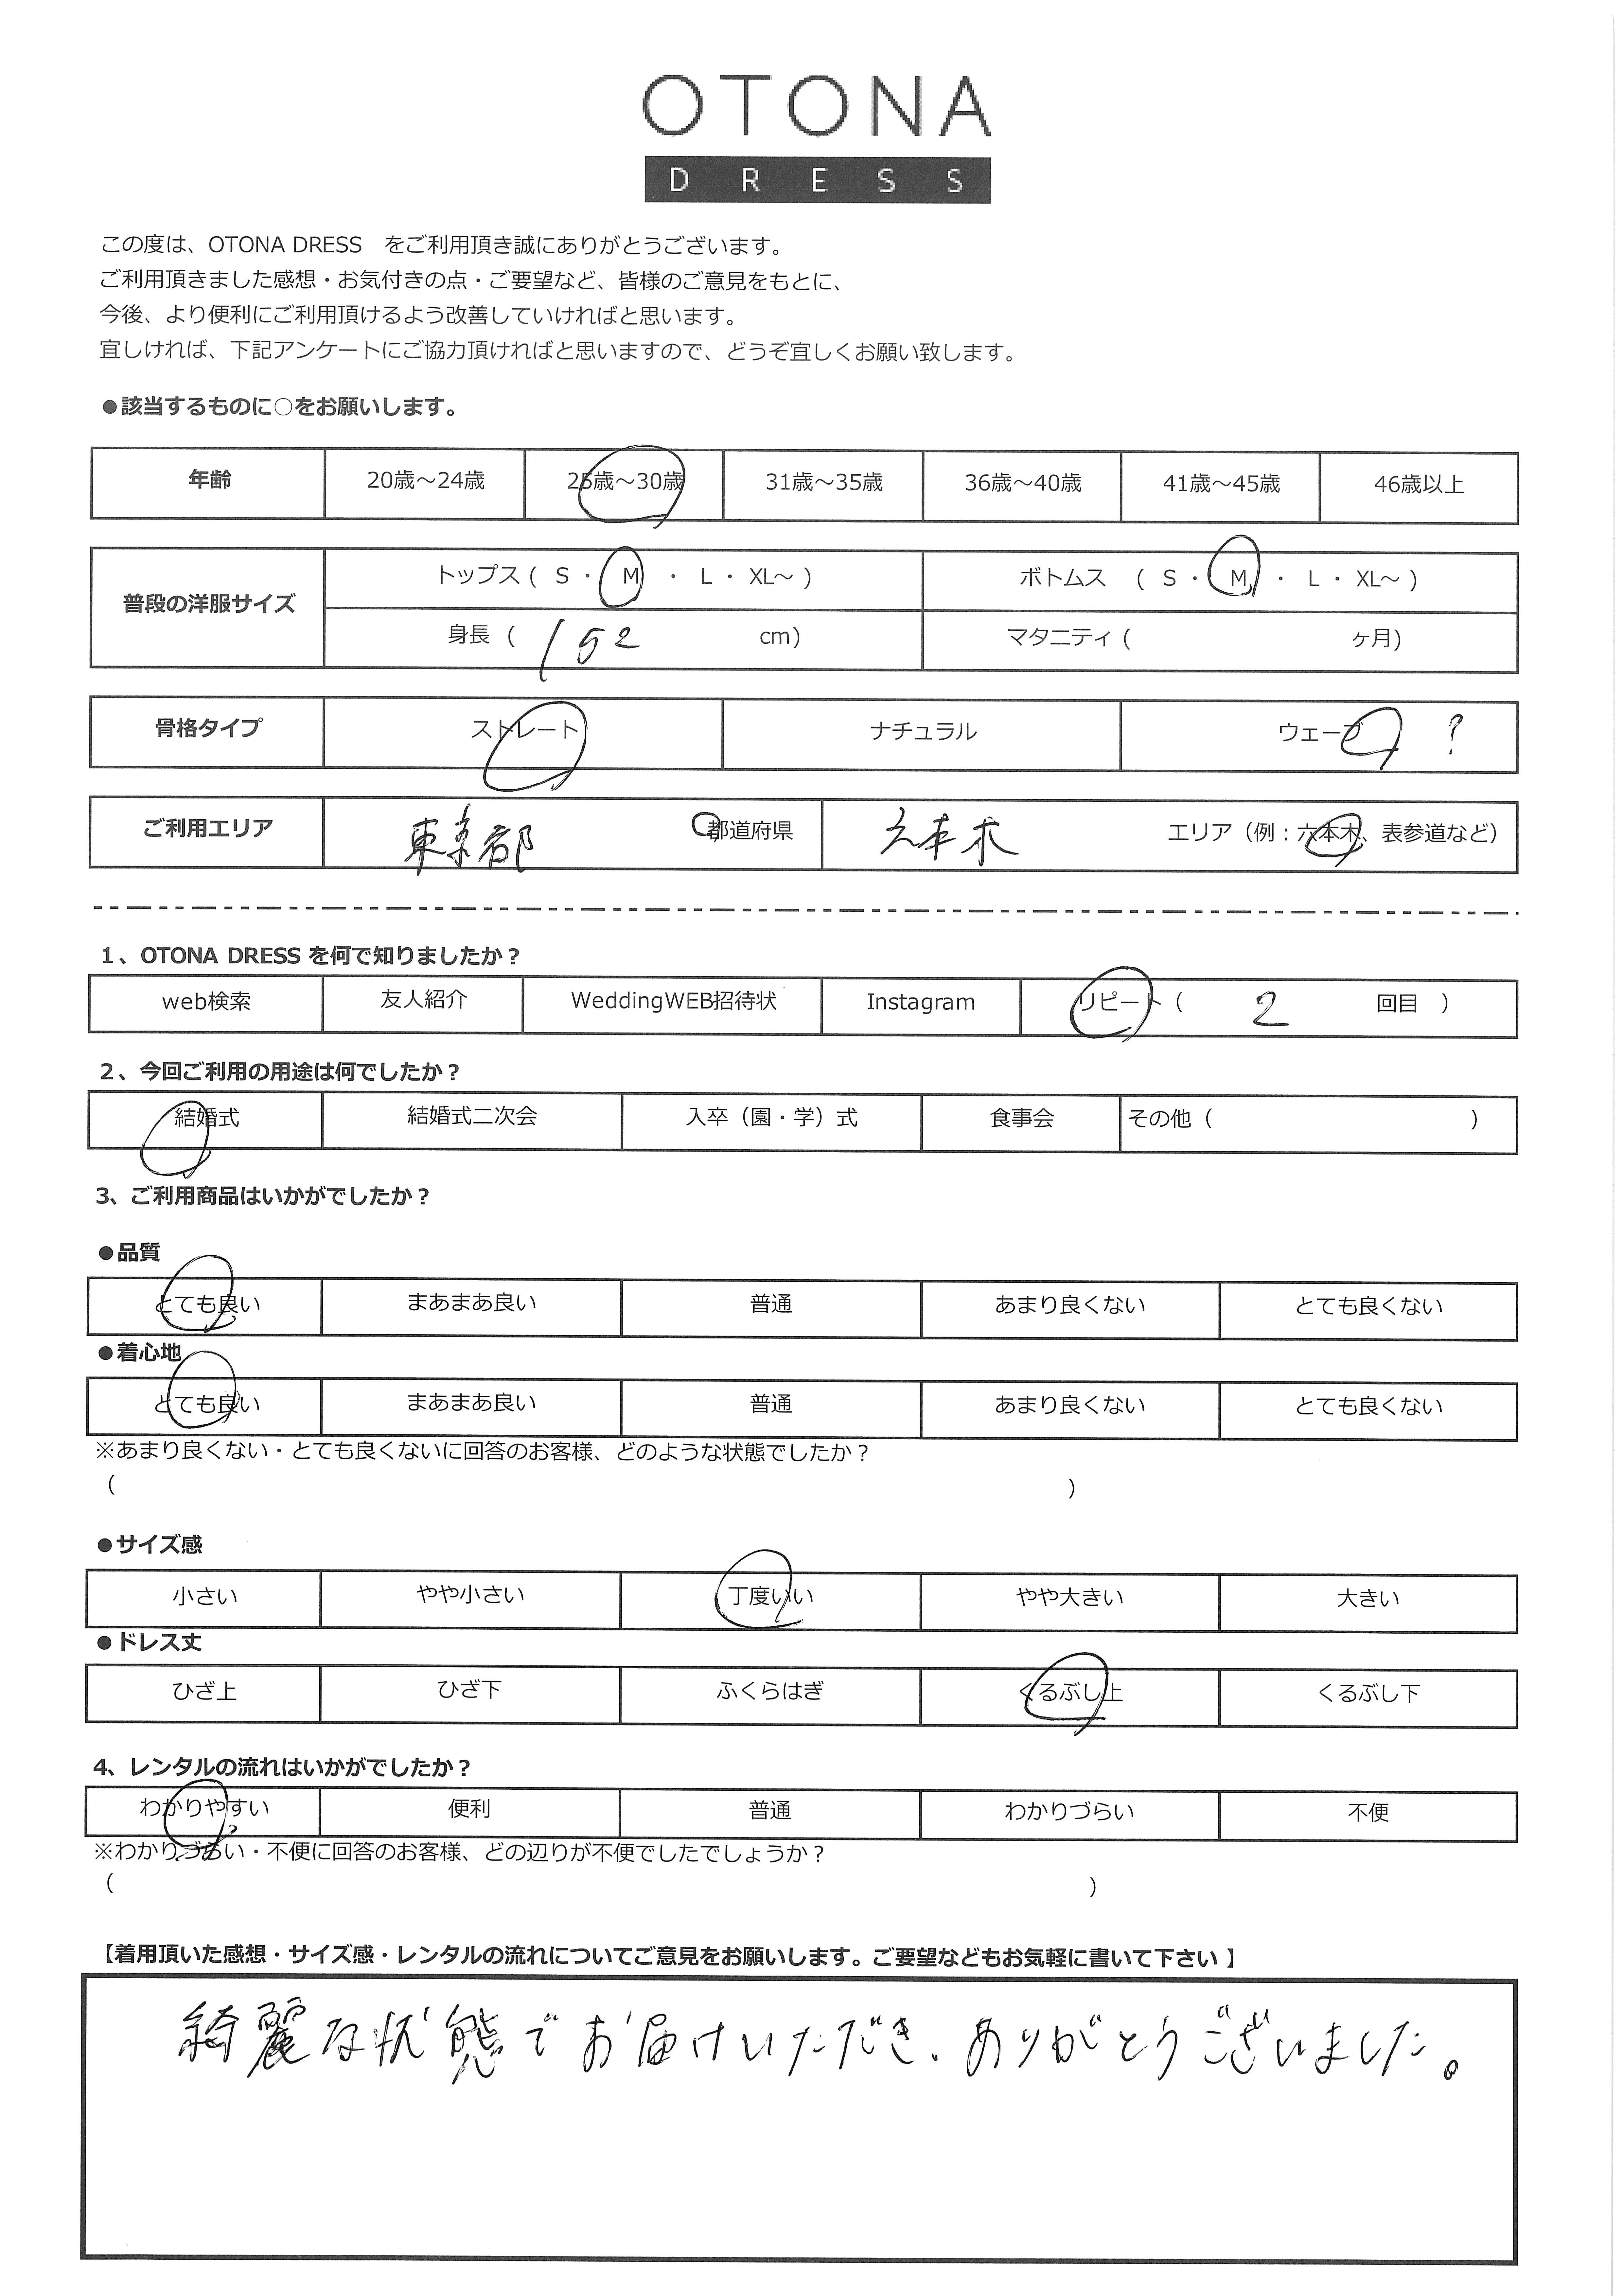 OTONA
DRESS
この度は、OTONA DRESS　をご利用頂き誠にありがとうございます。
ご利用頂きました感想・お気付きの点・ご要望など、皆様のご意見をもとに、
今後、より便利にご利用頂けるよう改善していければと思います。
宜しければ、下記アンケートにご協力頂ければと思いますので、どうぞ宜しくお願い致します。
●該当するものに○をお願いします。
年齢 20歳～24歳 25歳～30歳 31歳～35歳 36歳～40歳 41歳～45歳 46歳以上
普段の洋服サイズ トップス ( S ・ M ・ L ・ XL～ ) ボトムス ( S ・ M ・ L ・ XL～ )
身長 ( 152 cm) マタニティ ( ヶ月)
骨格タイプ ストレート ナチュラル ウェーブ ?
ご利用エリア 東京都 都道府県 六本木 エリア（例：六本木、表参道など）
1、OTONA DRESS を何で知りましたか？
web検索 友人紹介 WeddingWEB招待状 Instagram リピート（ 2 回目 ）
2、今回ご利用の用途は何でしたか？
結婚式 結婚式二次会 入卒（園・学）式 食事会 その他（ ）
3、ご利用商品はいかがでしたか？
●品質
とても良い まあまあ良い 普通 あまり良くない とても良くない
●着心地
とても良い まあまあ良い 普通 あまり良くない とても良くない
※あまり良くない・とても良くないに回答のお客様、どのような状態でしたか？
（ ）
●サイズ感
小さい やや小さい 丁度いい やや大きい 大きい
●ドレス丈
ひざ上 ひざ下 ふくらはぎ くるぶし上 くるぶし下
4、レンタルの流れはいかがでしたか？
わかりやすい 便利 普通 わかりづらい 不便
※わかりづらい・不便に回答のお客様、どの辺りが不便でしたでしょうか？
（ ）
【着用頂いた感想・サイズ感・レンタルの流れについてご意見をお願いします。ご要望などもお気軽に書いて下さい 】
綺麗な状態でお届けいただき、ありがとうございました。